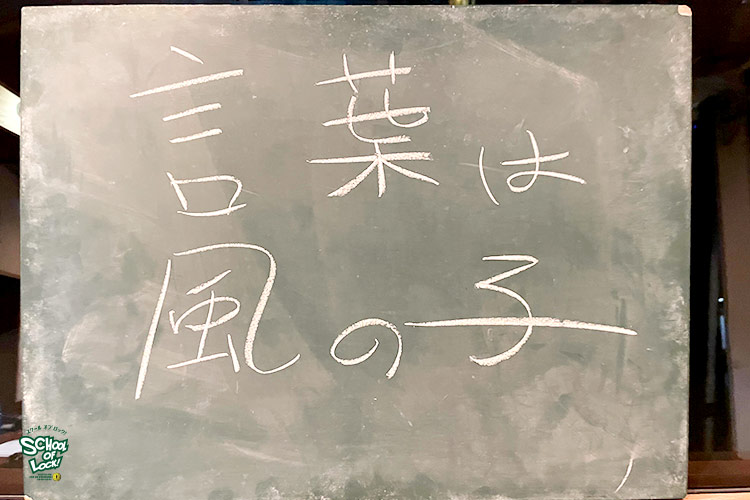 言葉は
風の子
スクール オブ ロック!
SCHOOL
OF
LOCK!